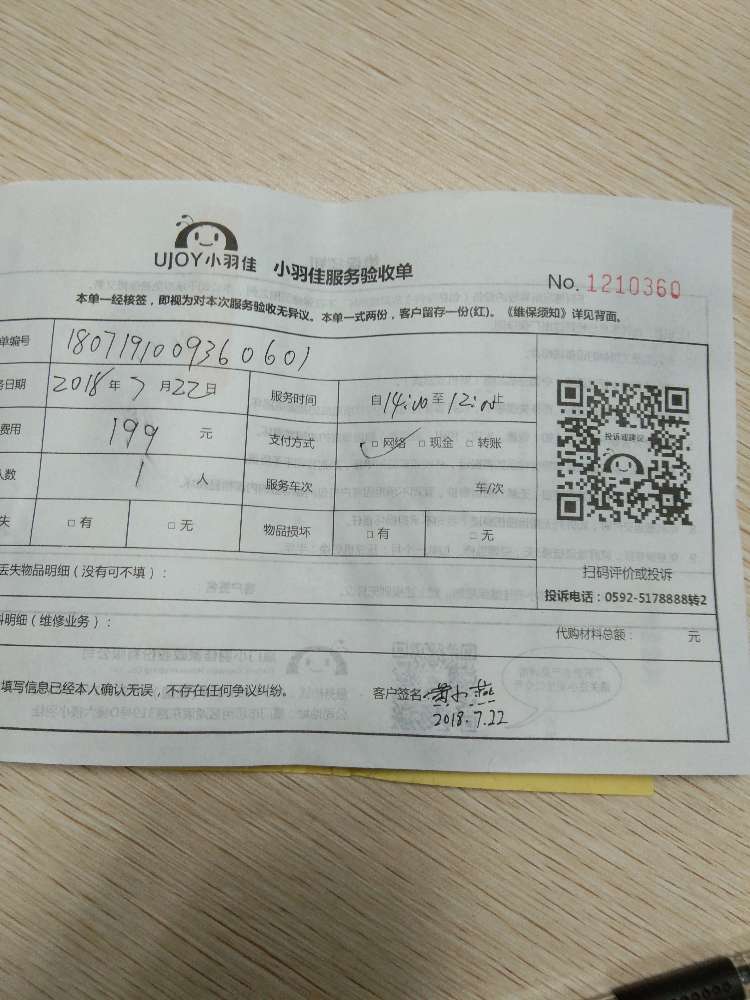 UJOY小羽佳 小羽佳服务验收单
No. 1210360
本单一经核签，即视为对本次服务验收无异议。本单一式两份，客户留存一份(红)。《维保须知》详见背面。
单编号 1807191009360601
务日期 2018年7月22日 服务时间 自14:00至12:00止
费用 199 元 支付方式 □网络 □现金 □转账
人数 1 人 服务车次 车/次
失 □有 □无 物品损坏 □有 □无
投诉或建议
扫码评价或投诉
投诉电话：0592-5178888转2
丢失物品明细（没有可不填）：
料明细（维修业务）： 代购材料总额： 元
填写信息已经本人确认无误，不存在任何争议纠纷。 客户签名：黄小燕
2018.7.22